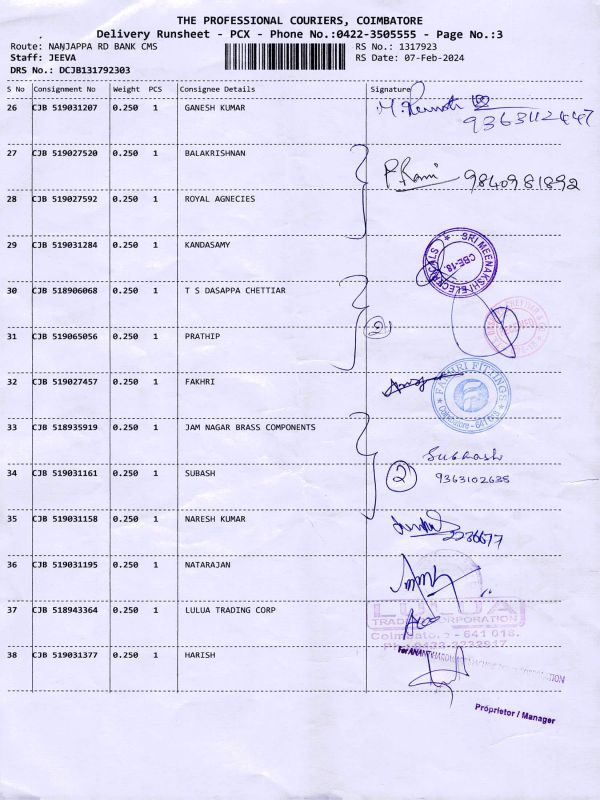 THE PROFESSIONAL COURIERS, COIMBATORE
Delivery Runsheet - PCX - Phone No.:0422-3505555 - Page No.:3
Route: NANJAPPA RD BANK CMS RS No.: 1317923
Staff: JEEVA RS Date: 07-Feb-2024
DRS No.: DCJB131792303
S No Consignment No Weight PCS Consignee Details Signature
26 CJB 519031207 0.250 1 GANESH KUMAR
27 CJB 519027520 0.250 1 BALAKRISHNAN
P. Rani 9840981892
28 CJB 519027592 0.250 1 ROYAL AGNECIES
29 CJB 519031284 0.250 1 KANDASAMY
SRI MEENAKSHI ELECTRICALS
CBE-18.
30 CJB 518906068 0.250 1 T S DASAPPA CHETTIAR
2
31 CJB 519065056 0.250 1 PRATHIP
32 CJB 519027457 0.250 1 FAKHRI
FAKHRI FITTINGS
Coimbatore - 641 018
33 CJB 518935919 0.250 1 JAM NAGAR BRASS COMPONENTS
Subhash
34 CJB 519031161 0.250 1 SUBASH
2 9363102635
35 CJB 519031158 0.250 1 NARESH KUMAR
36 CJB 519031195 0.250 1 NATARAJAN
37 CJB 518943364 0.250 1 LULUA TRADING CORP
LULUA
TRADING CORPORATION
Coimbatore - 641 018.
38 CJB 519031377 0.250 1 HARISH
Proprietor / Manager